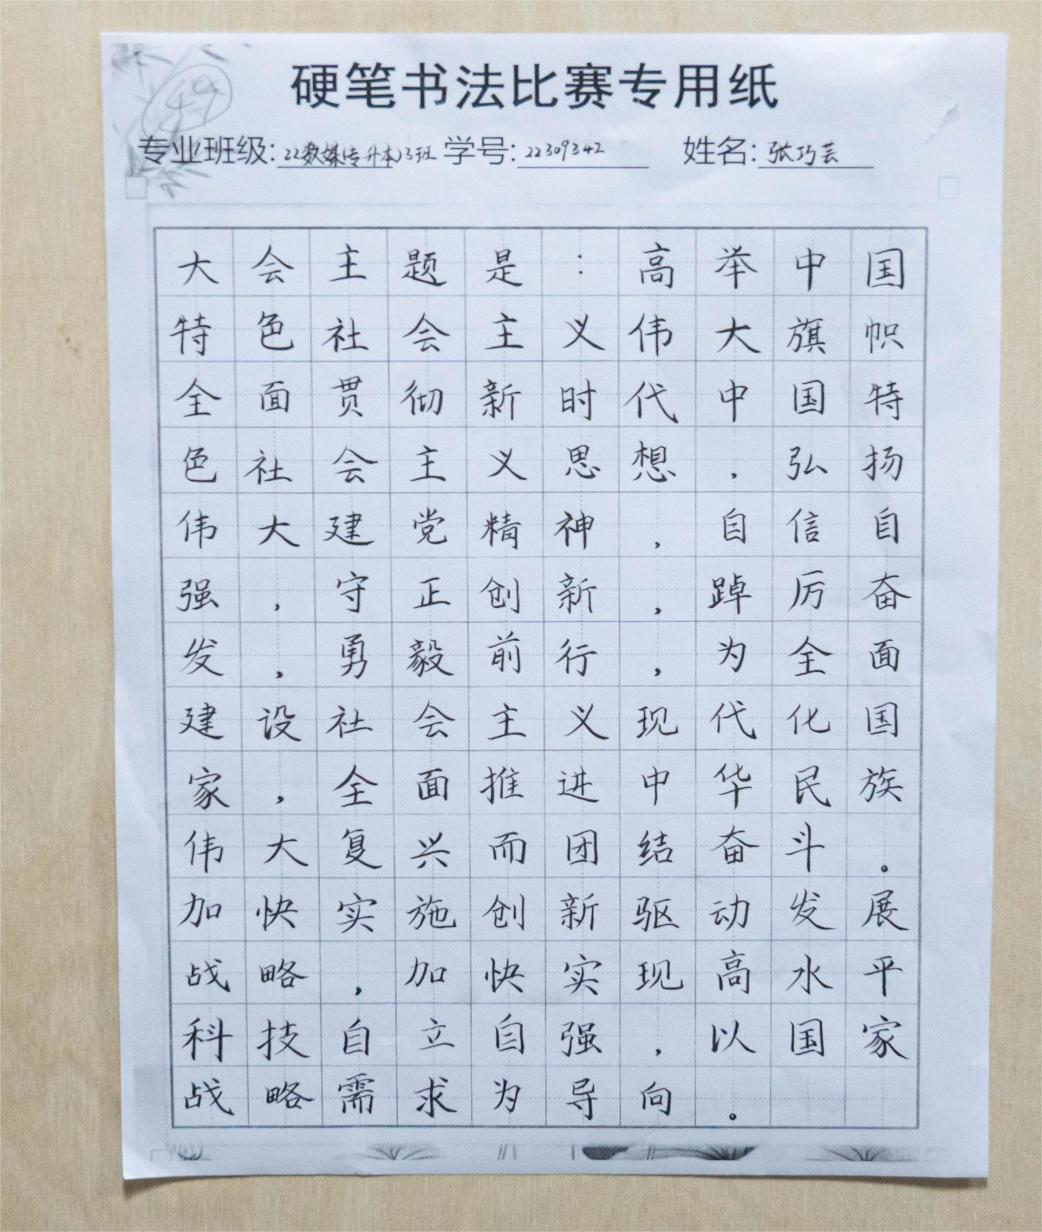 硬笔书法比赛专用纸
专业班级: 22数媒(专升本)3班 学号: 22309342 姓名: 张巧芸
大会主题是:高举中国
特色社会主义伟大旗帜
全面贯彻新时代中国特
色社会主义思想,弘扬
伟大建党精神,自信自
强,守正创新,踔厉奋
发,勇毅前行,为全面
建设社会主义现代化国
家,全面推进中华民族
伟大复兴而团结奋斗。
加快实施创新驱动发展
战略,加快实现高水平
科技自立自强,以国家
战略需求为导向。